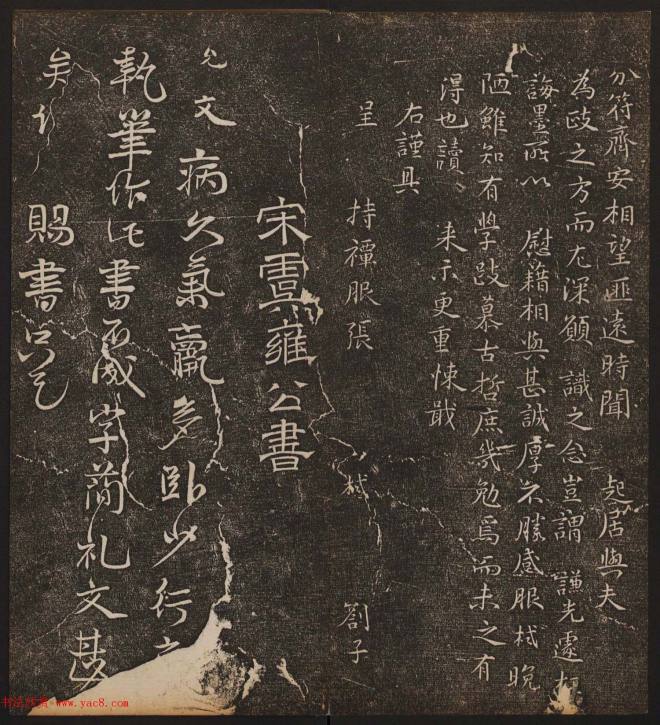 分符齊安相望匪遠時聞 起居與夫
為政之方而尤深願識之念豈謂 謙光遽
誨墨所以 慰藉相與甚誠厚不勝感服栻晚
陋雖知有學跂慕古哲庶幾勉焉而未之有
得也讀、 来示更重悚戢
右謹具
呈 持禫服張 栻 劄子
宋虞雍公書
允文病久氣羸多卧少行
執筆作此書不成字簡札文甚
矣
賜書
书法欣赏-www.yac8.com